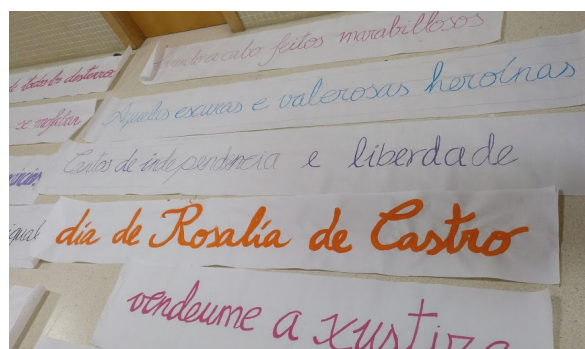 levando a cabo feitos marabillosos
de todolo desterro
Aquelas escuras e valerosas heroínas
se
Cantos de independencia e liberdade
igual
día de Rosalía de Castro
vendeume a xustiza